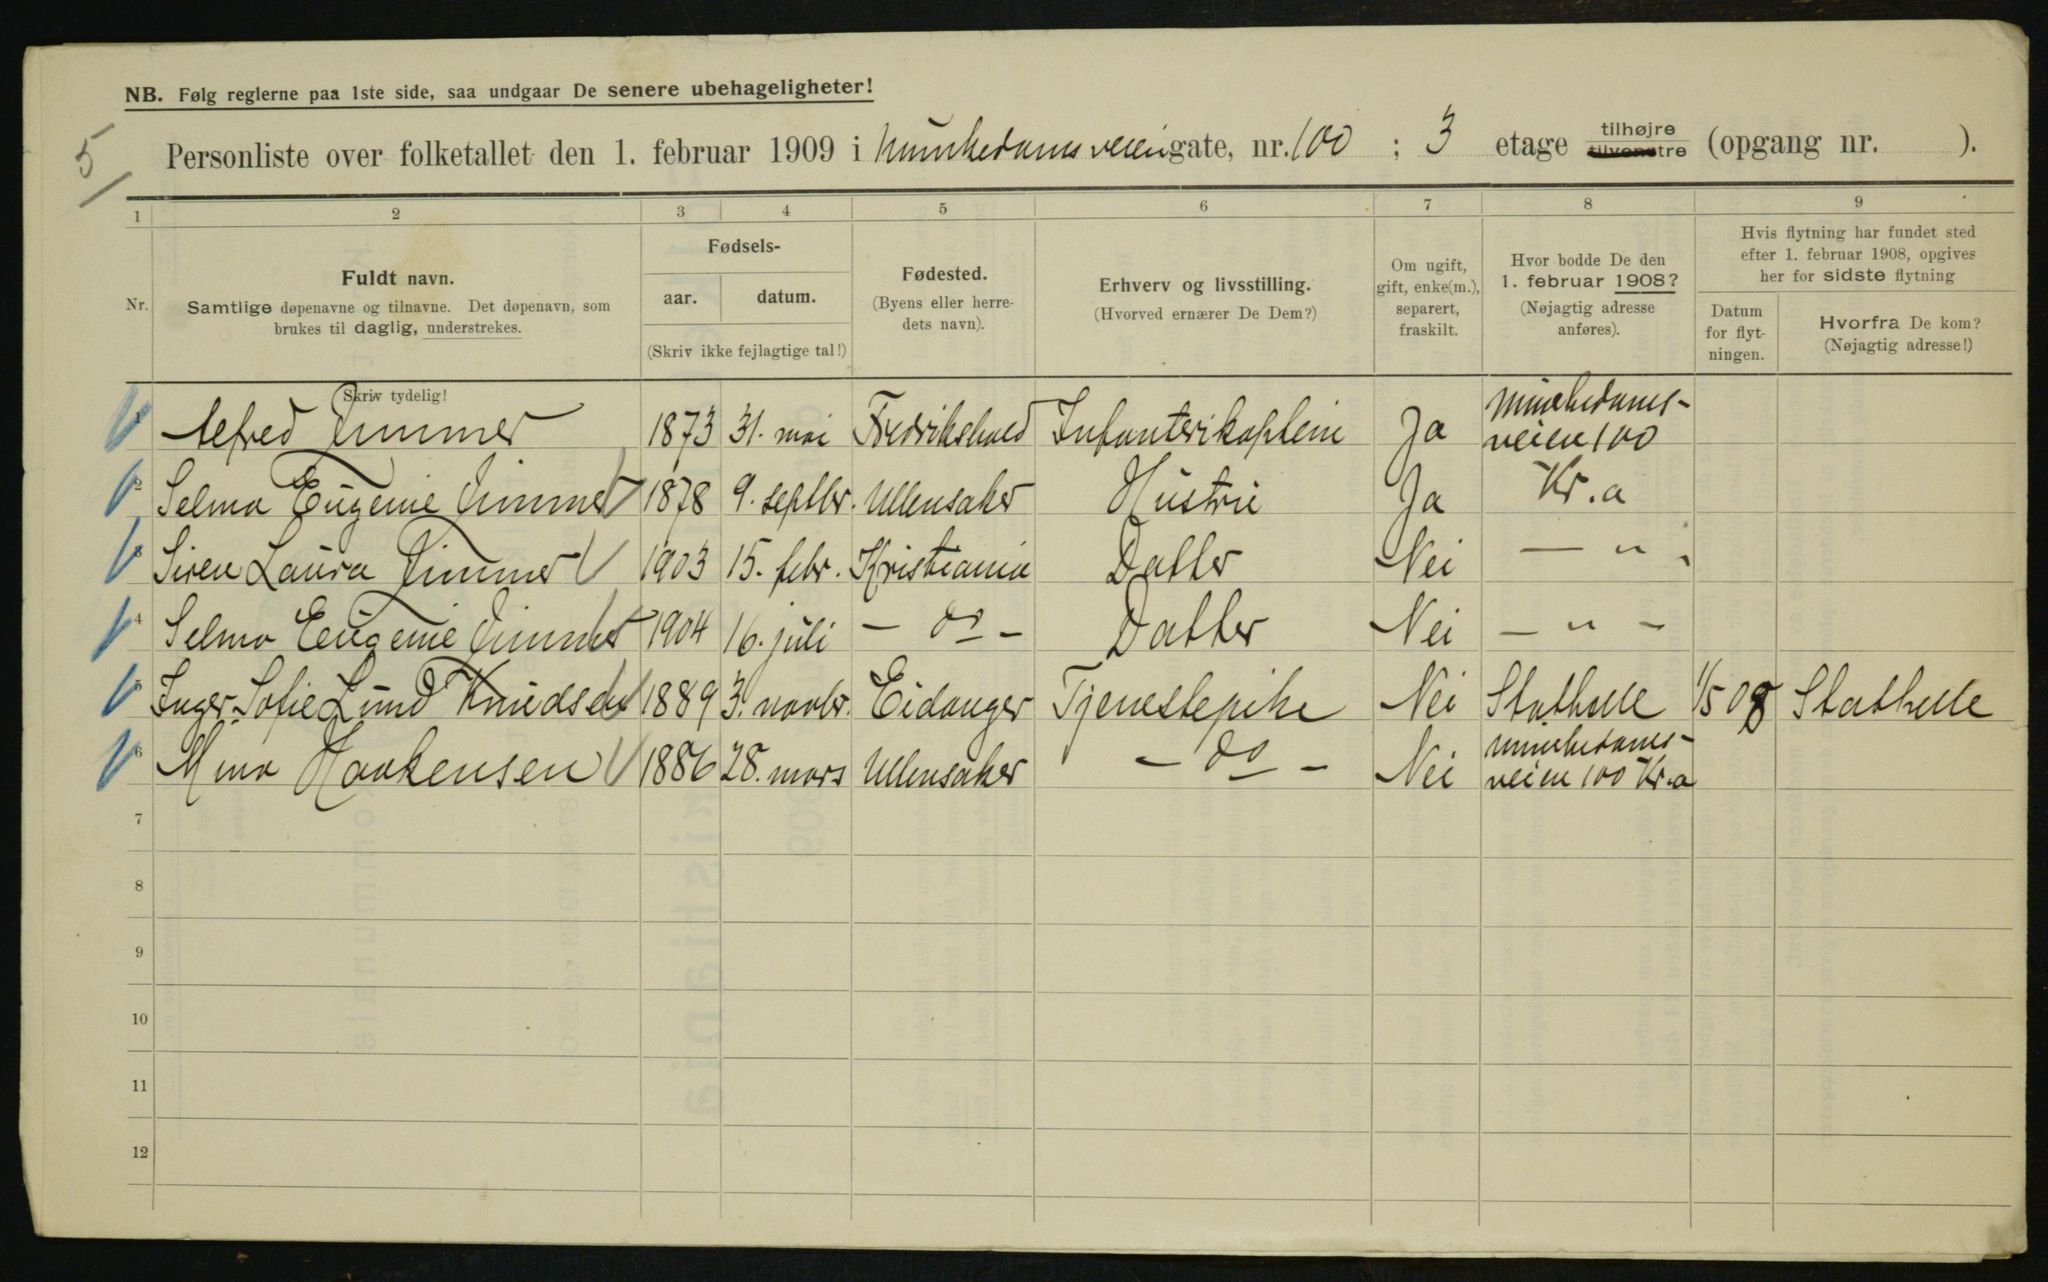 NB. Følg reglerne paa 1ste side, saa undgaar De senere ubehageligheter!
5
Personliste over folketallet den 1. februar 1909 i Munkedamsveien gate, nr. 100 ; 3 etage tilhøjre tilvenstre (opgang nr. ).
1 2 3 4 5 6 7 8 9
Nr.
Fuldt navn.
Samtlige døpenavne og tilnavne. Det døpenavn, som
brukes til daglig, understrekes.
Fødsels-
aar. datum.
(Skriv ikke fejlagtige tal!)
Fødested.
(Byens eller herre-
dets navn).
Erhverv og livsstilling.
(Hvorved ernærer De Dem?)
Om ugift,
gift, enke(m.),
separert,
fraskilt.
Hvor bodde De den
1. februar 1908?
(Nøjagtig adresse
anføres).
Hvis flytning har fundet sted
efter 1. februar 1908, opgives
her for sidste flytning
Datum
for flyt-
ningen.
Hvorfra De kom?
(Nøjagtig adresse!)
Skriv tydelig!
1 Alfred 1873 31. mai Fredrikshald Infanterikaptein Ja Munkedams-
veien 100
2 Selma Eugenie 1878 9. septbr. Ullensaker Hustru Ja Kr.a
3 Siren Laura 1903 15. febr. Kristiania Datter Nei — " -
4 Selma Eugenie 1904 16. juli - do - Datter Nei - " -
5 Inger Sofie Lund Knudsen 1889 3. novbr. Eidanger Tjenestepike Nei Stathelle 1/5 08 Stathelle
6 Mina Haakensen 1886 28. mars Ullensaker - do - Nei Munkedams-
veien 100 Kr.a
7
8
9
10
11
12